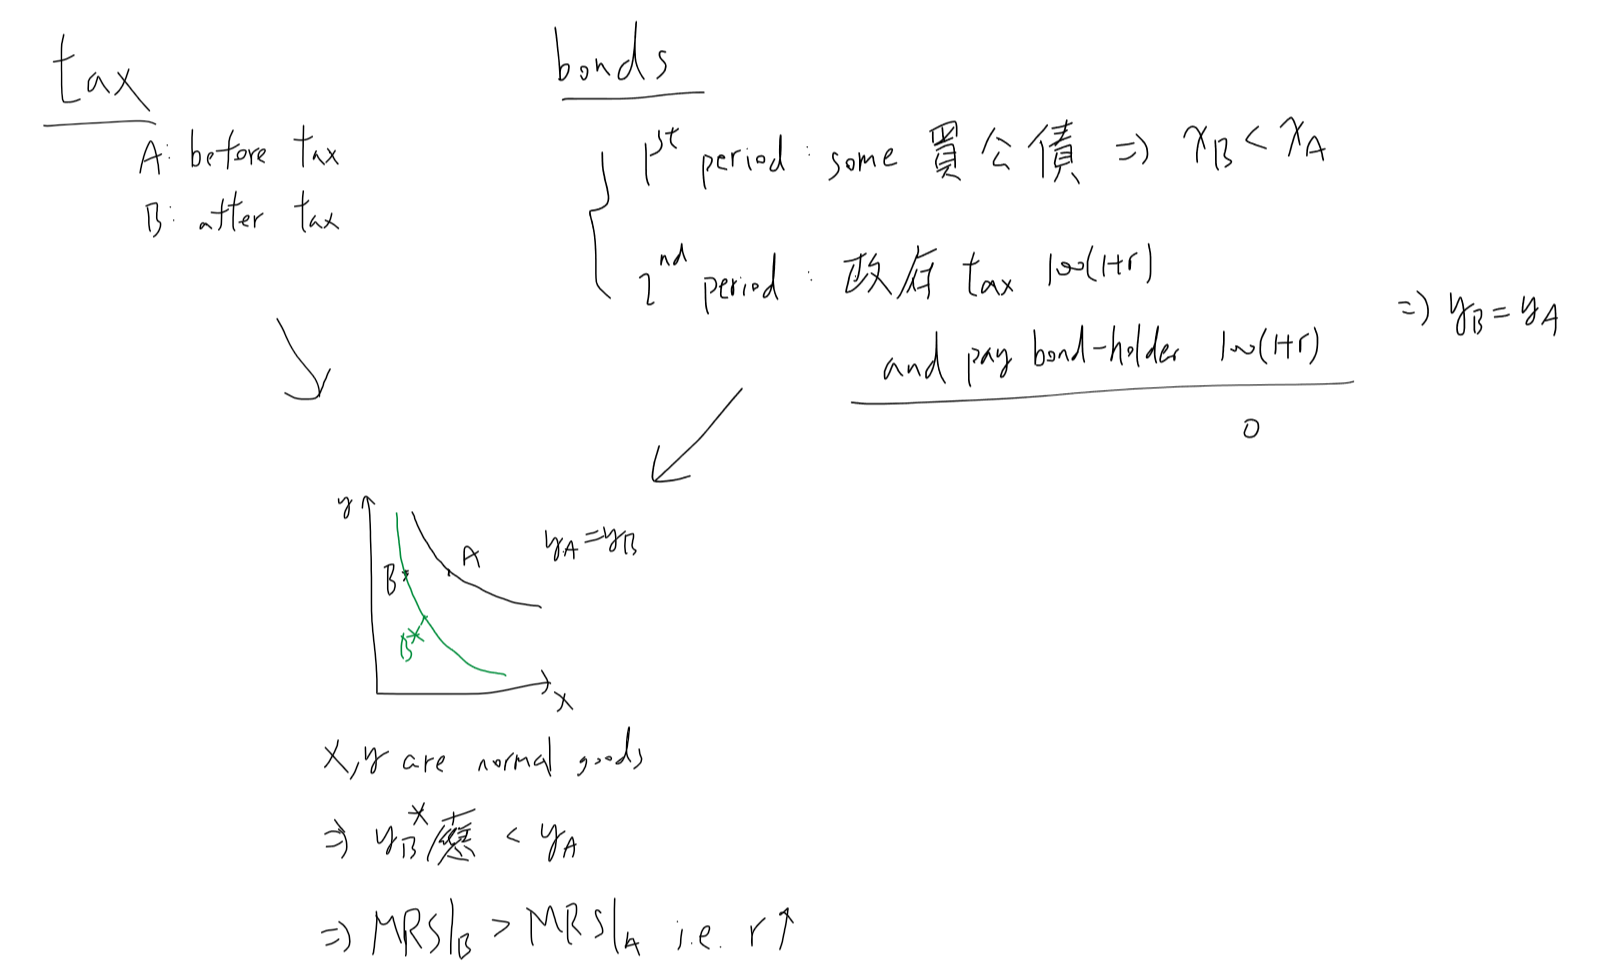 tax
A: before tax
B: after tax
bonds
1st period: some 買公債 => xB < xA
2nd period: 政府 tax 100(1+r)
and pay bond-holder 100(1+r)
0
=> yB = yA
y
A
B
B*
x
yA = yB
x, y are normal goods
=> yB* 應 < yA
=> MRS|B > MRS|A i.e. r↑